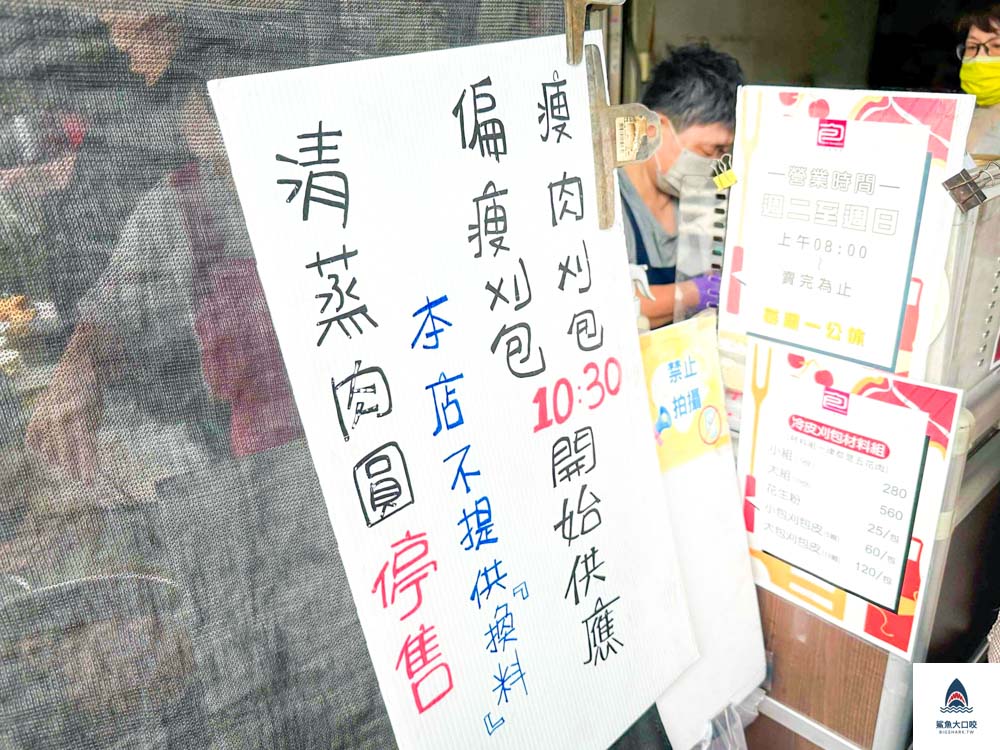 瘦肉刈包
偏瘦刈包
10:30開始供應
本店不提供『換料』
清蒸肉圓停售
包
營業時間
週二至週日
上午08:00
~
賣完為止
禁止
拍攝
包
冷凍刈包材料組
小組
280
大組
560
花生粉
25/包
小包刈包皮
60/包
大包刈包皮
120/包
鯊魚大口咬
BIGSHARK.TW